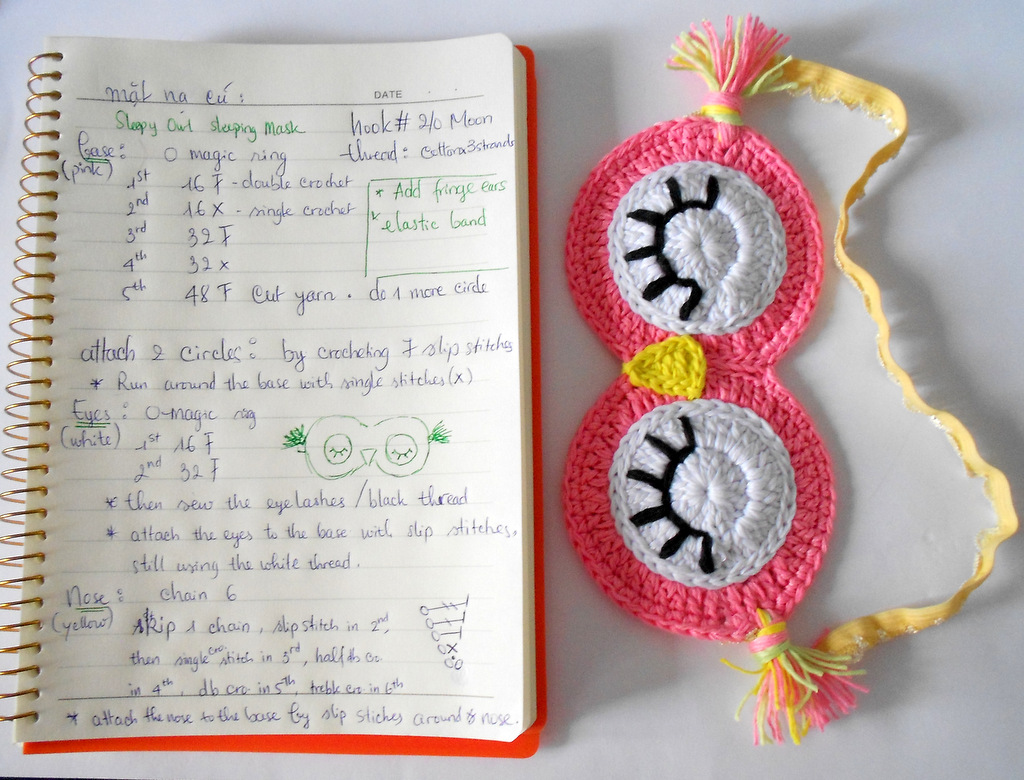 mặt na cú :
DATE
Sleepy Owl sleeping Mask
hook# 2/0 Moon
base : O magic ring
thread : cottonx3strands
(pink)
1st 16 F - double crochet
* Add fringe ears
2nd 16 X - single crochet
* elastic band
3rd 32 F
4th 32 x
5th 48 F Cut yarn . do 1 more circle
attach 2 circles : by crocheting 7 slip stitches
* Run around the base with single stitches (x)
Eyes : O-magic ring
(white) 1st 16 F
2nd 32 F
* then sew the eyelashes / black thread
* attach the eyes to the base with slip stitches,
still using the white thread.
Nose : chain 6
(yellow) skip 1 chain, slip stitch in 2nd,
then single cro stitch in 3rd, half db cro.
in 4th, db cro in 5th, treble cro in 6th
* attach the nose to the base by slip stiches around nose.